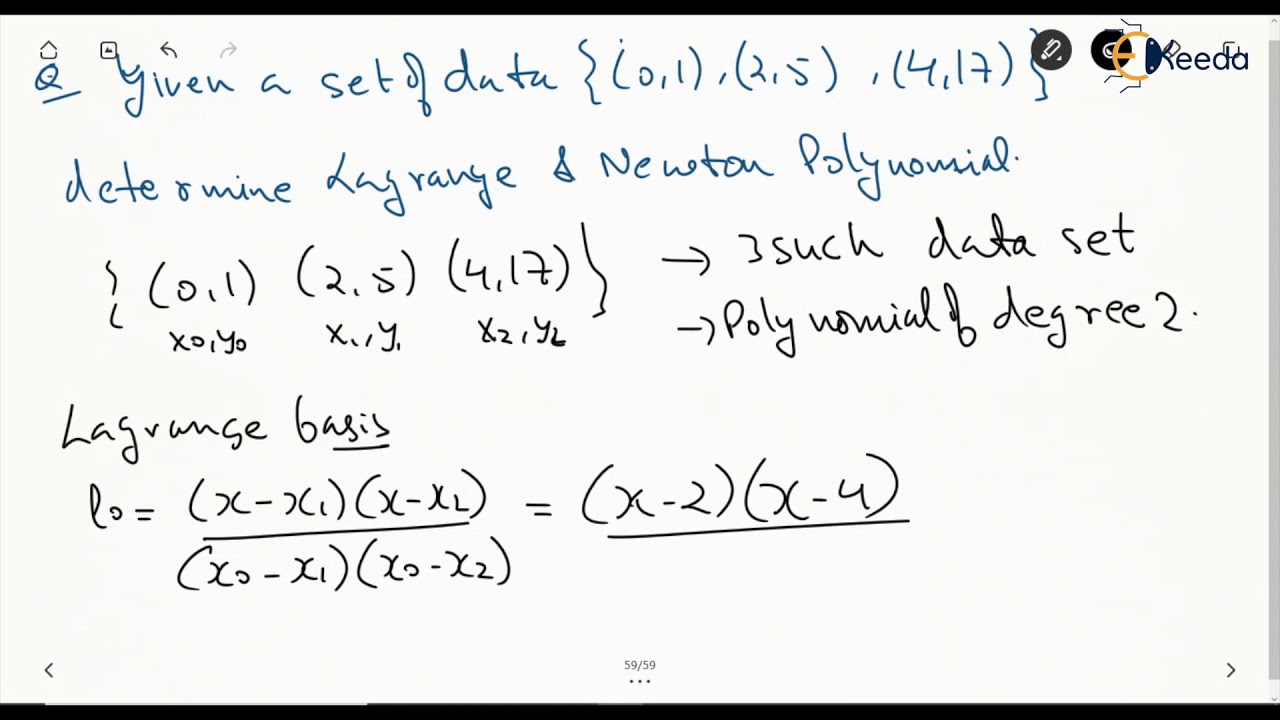 Q Given a set of data {(0,1), (2,5), (4,17)}
EKeeda
determine Lagrange & Newton Polynomial.
{ (0,1) (2,5) (4,17) } → 3 such data set
x0,y0 x1,y1 x2,y2 → Polynomial of degree 2.
Lagrange basis
l0 = (x-x1)(x-x2) = (x-2)(x-4)
(x0-x1)(x0-x2)
59/59